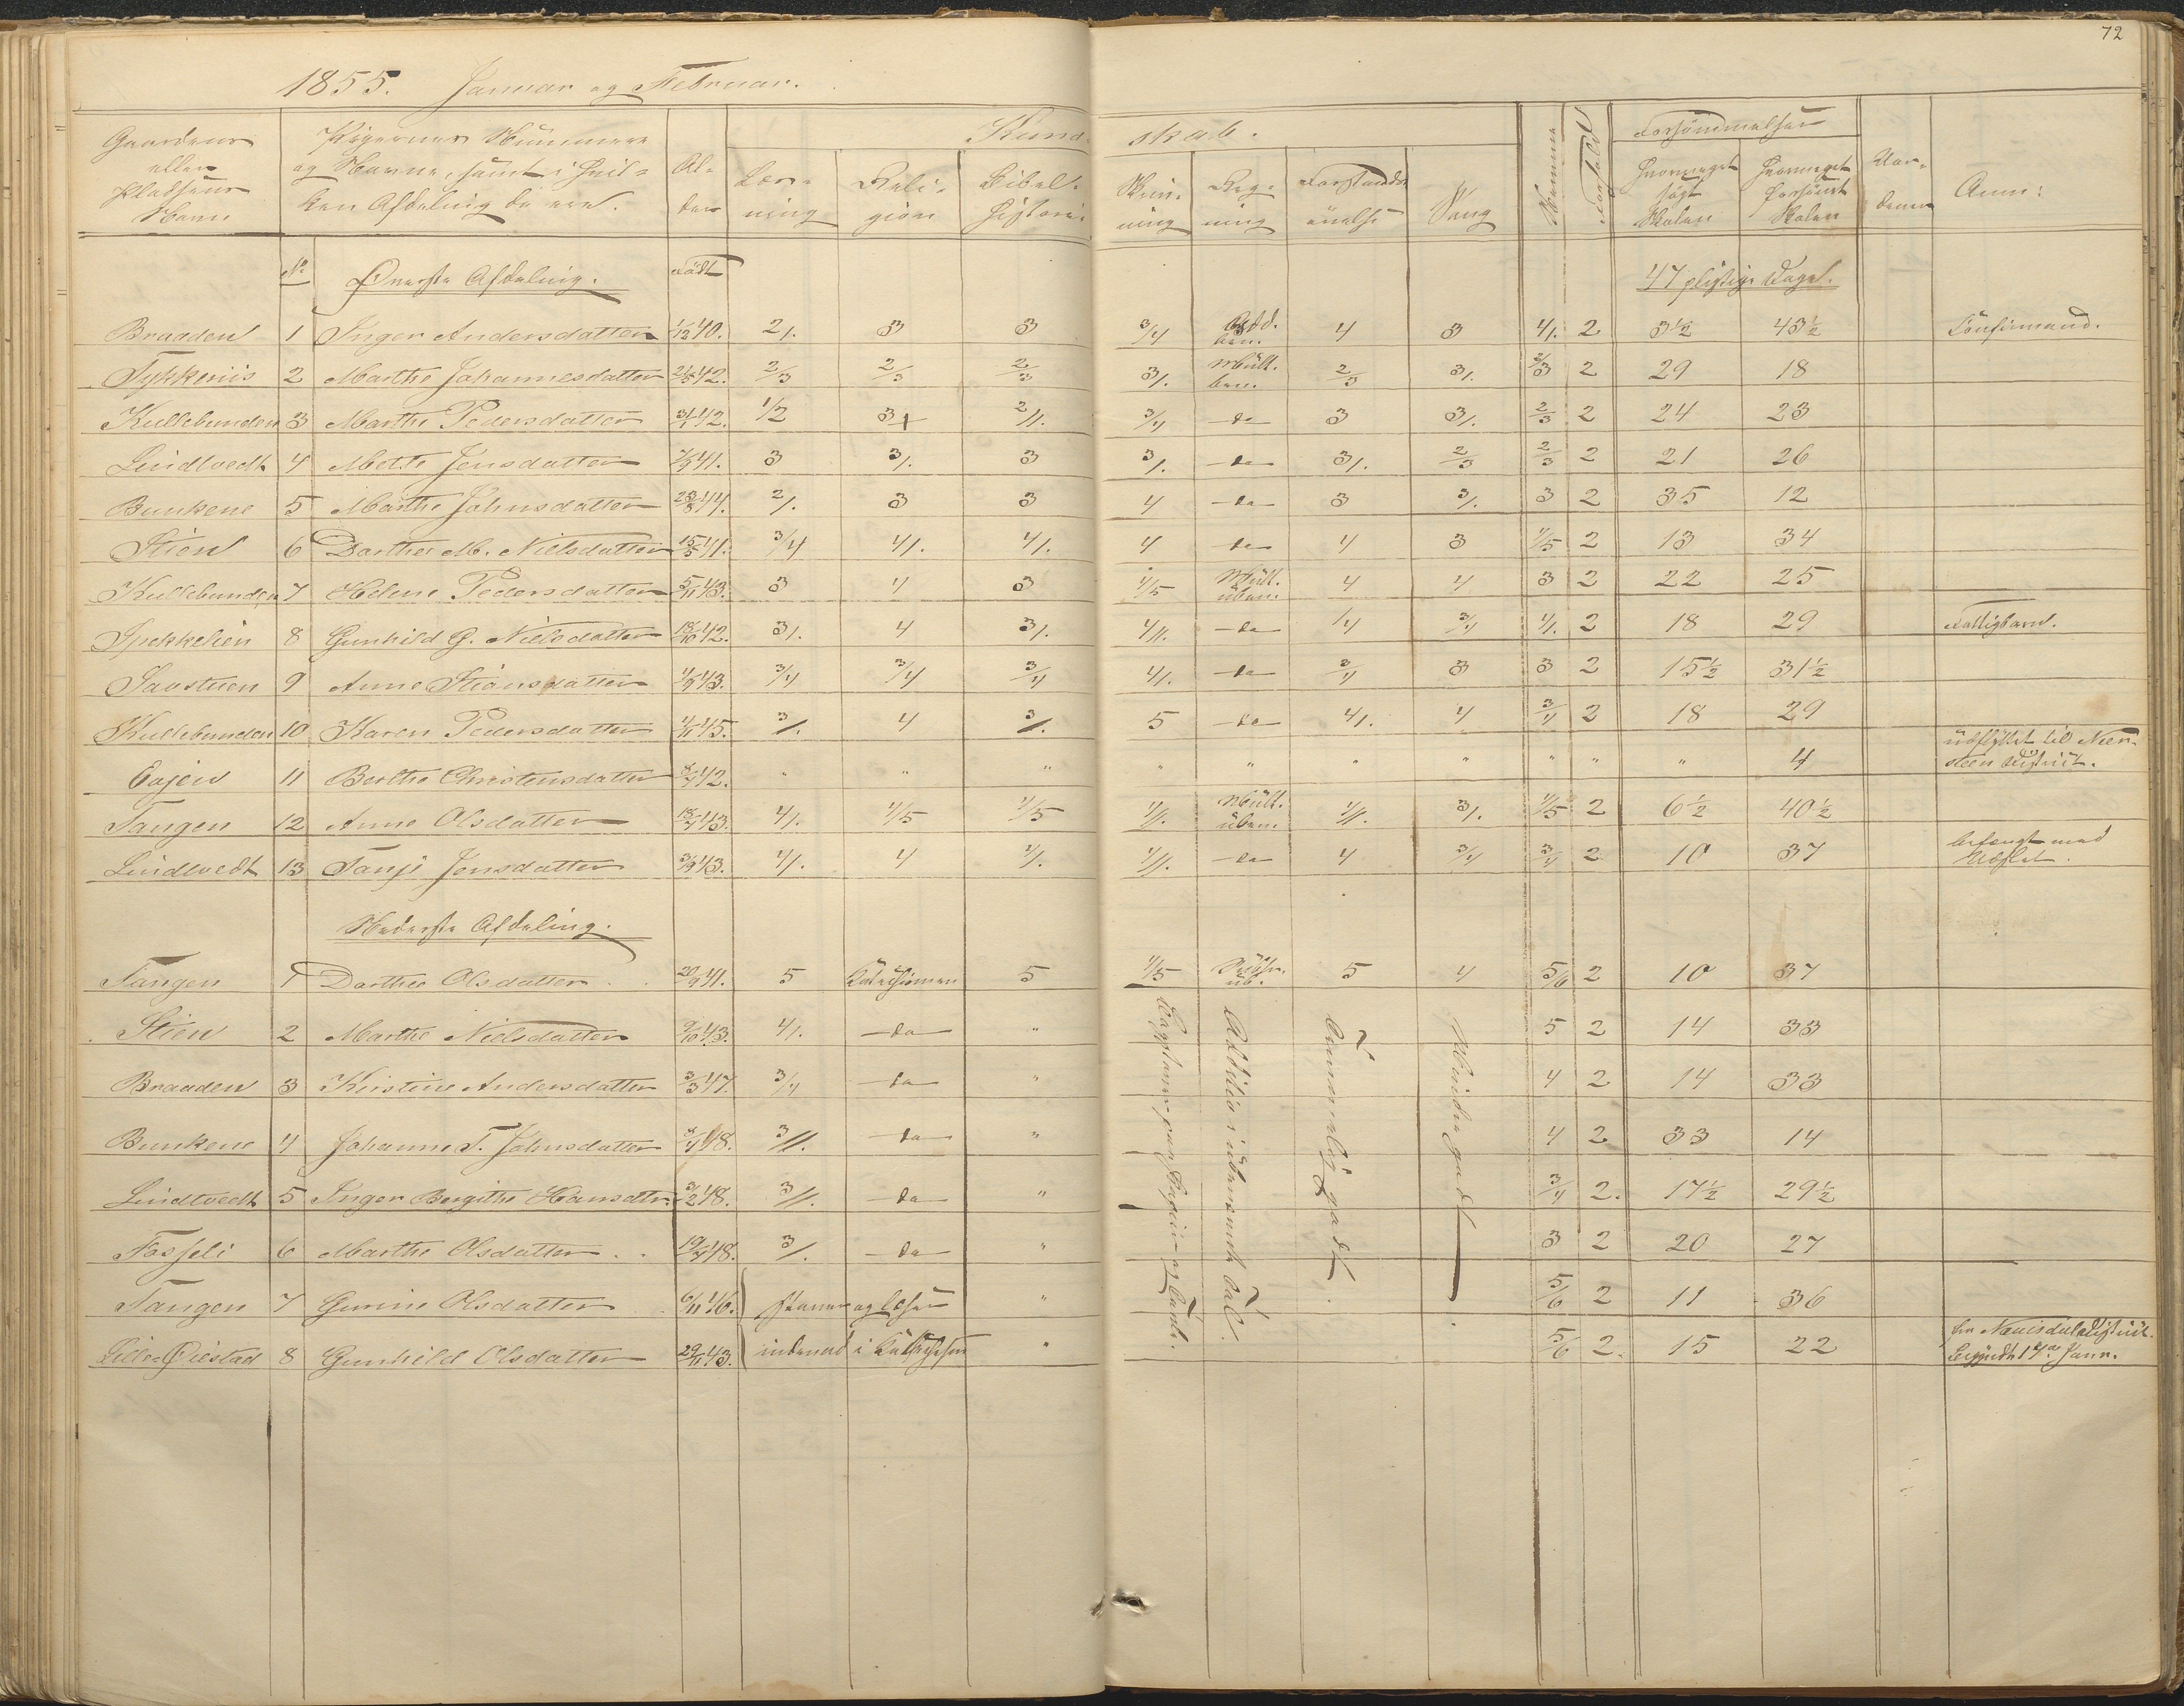 72
1855. Januar og Februar.
Gaardens eller Pladsens Navn | Pigernes Nummere og Navne, samt i hvilken Afdeling de ere. | Alder | Kundskab. | Evner | Forhold | Forsömmelser | Anm:
Læsning | Religion | Bibelhistorie | Skrivning | Regning | Forstandsövelse | Sang | hvormeget søgt Skolen | hvormeget forsömt Skolen
No | Øverste Afdeling. | Födt | 47 pligtige Dage.
Braaden 1 Inger Andersdatter 1/12 40. 2/. 3 3 3/4 4 3 4/. 2 3½ 43½ Confirmand.
Tykkeriis 2 Marthe Johannesdatter 42. 2/3 2/3 2/3 3/. Mult. ben. 2/3 3/. 2/3 2 29 18
Kullebunden 3 Marthe Pedersdatter 31/1 42. 1/2 2//. 3/4 do 3 3/. 2/3 2 24 23
Lindtvedt 4 Mette Jensdatter 7/9 41. 3 3/. 3 3/. do 3/. 2/3 2/3 2 21 26
Bunkene 5 Marthe Johnsdatter 23/8 44. 2/. 3 3 4 do 3 3/. 3 2 35 12
Stien 6 Dorthea M. Nielsdatter 15/5 41. 3/4 4/. 4/. 4 do 4 3 4/5 2 13 34
Kullebunden 7 Helene Pedersdatter 5/11 43. 3 4 3 4/5 Mult. uben. 4 4 3 2 22 25
Spekkelien 8 Gunhild G. Nielsdatter 18/10 42. 3/. 4 3/. 4//. do 4 3/4 4/. 2 18 29 Fattigbarn.
Saustuen 9 Anne Stiansdatter 4/9 43. 3/4 3/4 3/4 4/. do 3/4 3 3 2 15½ 31½
Kullebunden 10 Karen Pedersdatter 4/11 45. 3/. 4 3/. 5 do 4/. 4 3/4 2 18 29
11 Berthe Christensdatter 42. " " " " " " " " " " 4 udflyttet til
Tangen 12 Anne Olsdatter 18/4 43. 4/. 4/5 4/5 4//. Mult. uben. 4//. 3/. 4/5 2 6½ 40½
Lindtvedt 13 Tanje Jensdatter 3/9 43. 4/. 4 4/. 4//. do 4 3/4 3/4 2 10 37 befængt med Udslet.
Nederste Afdeling.
Tangen 1 Dorthea Olsdatter 20/9 41. 5 Catechismen 5 4/5 5 4 5/6 2 10 37
Stien 2 Marthe Nielsdatter 9/10 43. 4/. do " 5 2 14 33
Braaden 3 Kirstine Andersdatter 3/3 47. 3/4 do " 4 2 14 33
Bunkene 4 Johanne T. Johnsdatter 48. 3//. do " 4 2 33 14
Lindtvedt 5 Inger Bergithe Hansdttr. 3/2 48. 3//. do " 3/4 2. 17½ 29½
Fosseli 6 Marthe Olsdatter 48. 3/. do " 3 2 20 27
Tangen 7 Gunine Olsdatter 6/11 46. staver og læser " 5/6 2 11 36
Lille Øiestad 8 Gunhild Olsdatter 29/11 43. indenad i " 5/6 2. 15 22
Addition i ubenævnte Tal.
Temmelig godt.
Mindre godt